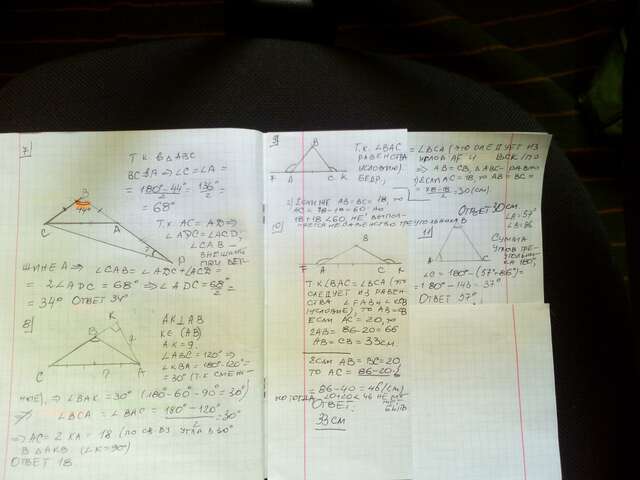 7)
Т.К В △ABC
BC=BA ⇒ ∠C=∠A=
= 180°-44°/2 = 136°/2 =
= 68°
Т.К. AC = AD ⇒
∠ADC=∠ACD;
∠CAB –
ВНЕШНИЙ
ПРИ ВЕР-
B
44°
C
A
D
ШИНЕ A ⇒ ∠CAB = ∠ADC+∠ACD =
= 2∠ADC = 68° ⇒ ∠ADC = 68°/2 =
= 34° ОТВЕТ 34°
8)
K
B
9
C
A
AK⊥AB
K∈ (AB)
AK=9
∠ABC=120° ⇒
∠KBA=180°-120°=
(Т.К СМЕЖ-
НЫЕ), ⇒ ∠BAK =30° (180°-60°-90°=30°)
⇒ ∠BCA = ∠BAC = 180°-120°/2 =30°
⇒ AC=2 KA = 18 (ПО СВ. ВУ УГЛА В 30°
В △AKB (∠K=90°)
ОТВЕТ 18.
9)
B
F A C K
Т.К. ∠BAC = ∠BCA (ЭТО СЛЕДУЕТ ИЗ
РАВЕНСТВА
УСЛОВИЮ) ⇒ AB = CB, △ABC- РАВНО
БЕДР.
2) ЕСЛИ ЖЕ AB=BC= 18, ТО
AC = 78-18=60 НО
18+18<60, НЕ ВЫПОЛ-
НЯЕТСЯ НЕРАВЕНСТВО ТРЕУГОЛЬНИКА
1) ЕСЛИ AC=18, ТО AB=BC=
= 78-18/2 = 30 (СМ)
ОТВЕТ 30 СМ.
10)
B
F A C K
Т.К ∠BAC = ∠BCA (ЭТО
СЛЕДУЕТ ИЗ РАВЕН-
СТВА ∠FAB И ∠KCB
УСЛОВИЕ), ТО AB=CB
ЕСЛИ AC = 20, ТО
2AB= 86-20=66
AB = CB = 33СМ.
2) ЕСЛИ AB = BC=20,
ТО AC = 86-20·2
= 86-40 = 46 (СМ)
НО ТОГДА 20+20<46
ОТВЕТ:
33 СМ
11)
B
A
∠A=57°
∠B=86
СУММА
УГЛОВ ТРЕ-
УГОЛЬНИ-
КА 180°,
∠C = 180°-(57°+86°)=
= 180°-143=37°
ОТВЕТ 57°